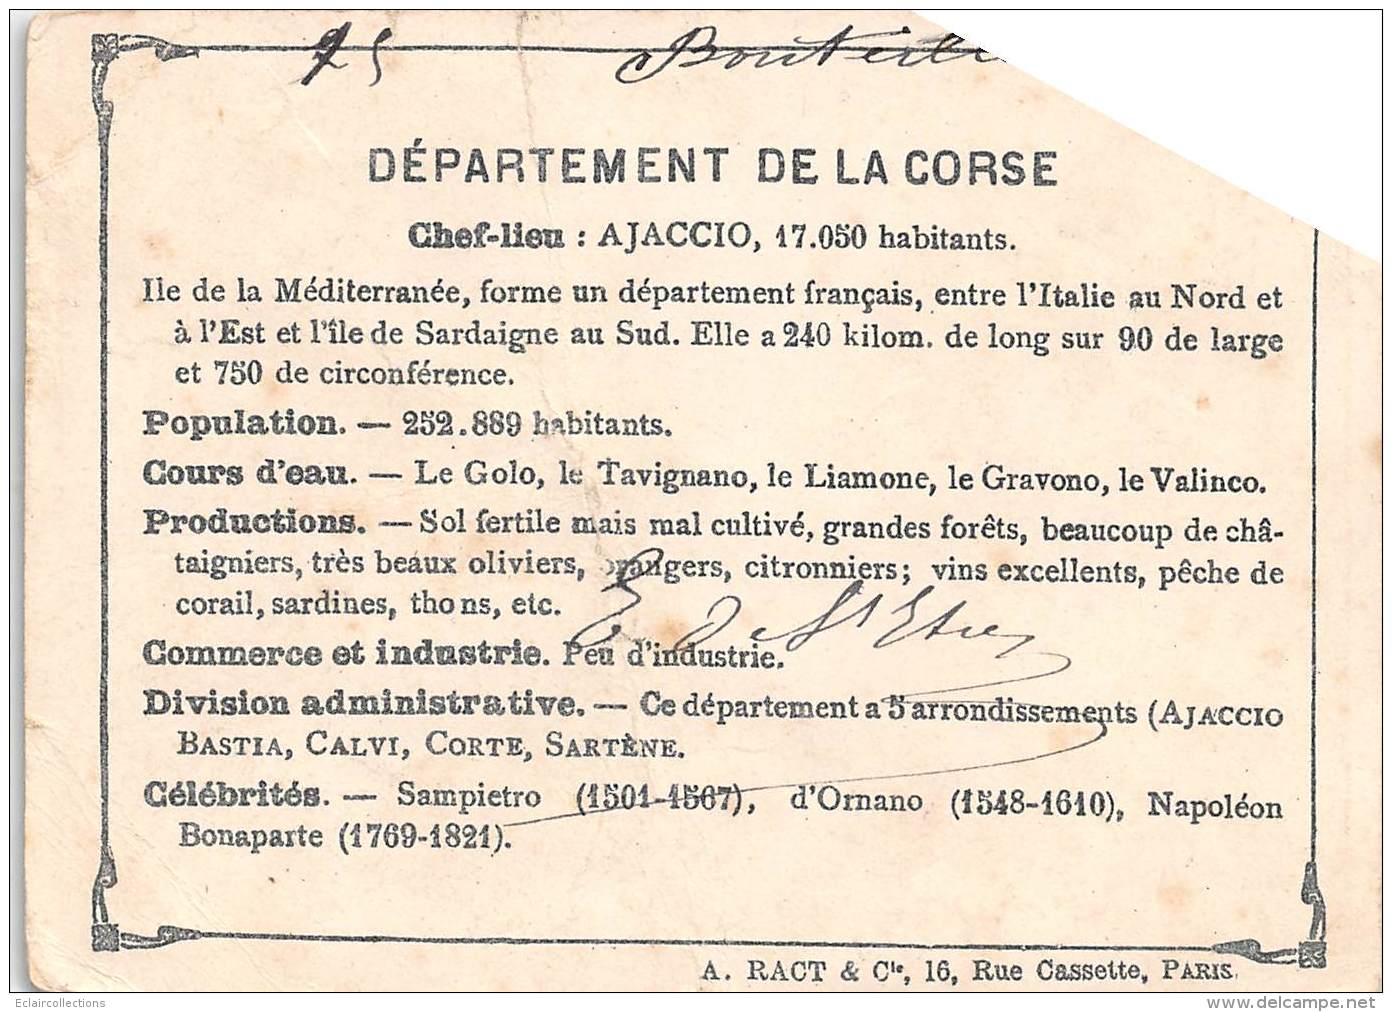 75
DÉPARTEMENT DE LA CORSE
Chef-lieu : AJACCIO, 17.050 habitants.
Ile de la Méditerranée, forme un département français, entre l'Italie au Nord et
à l'Est et l'île de Sardaigne au Sud. Elle a 240 kilom. de long sur 90 de large
et 750 de circonférence.
Population. — 252.889 habitants.
Cours d'eau. — Le Golo, le Tavignano, le Liamone, le Gravono, le Valinco.
Productions. — Sol fertile mais mal cultivé, grandes forêts, beaucoup de châ-
taigniers, très beaux oliviers, orangers, citronniers; vins excellents, pêche de
corail, sardines, thons, etc.
Commerce et industrie. Peu d'industrie.
Division administrative. — Ce département a 5 arrondissements (AJACCIO
BASTIA, CALVI, CORTE, SARTÈNE.
Célébrités. — Sampietro (1501-1567), d'Ornano (1548-1610), Napoléon
Bonaparte (1769-1821).
A. RACT & Cie, 16, Rue Cassette, PARIS.
Eclaircollections
www.delcampe.net